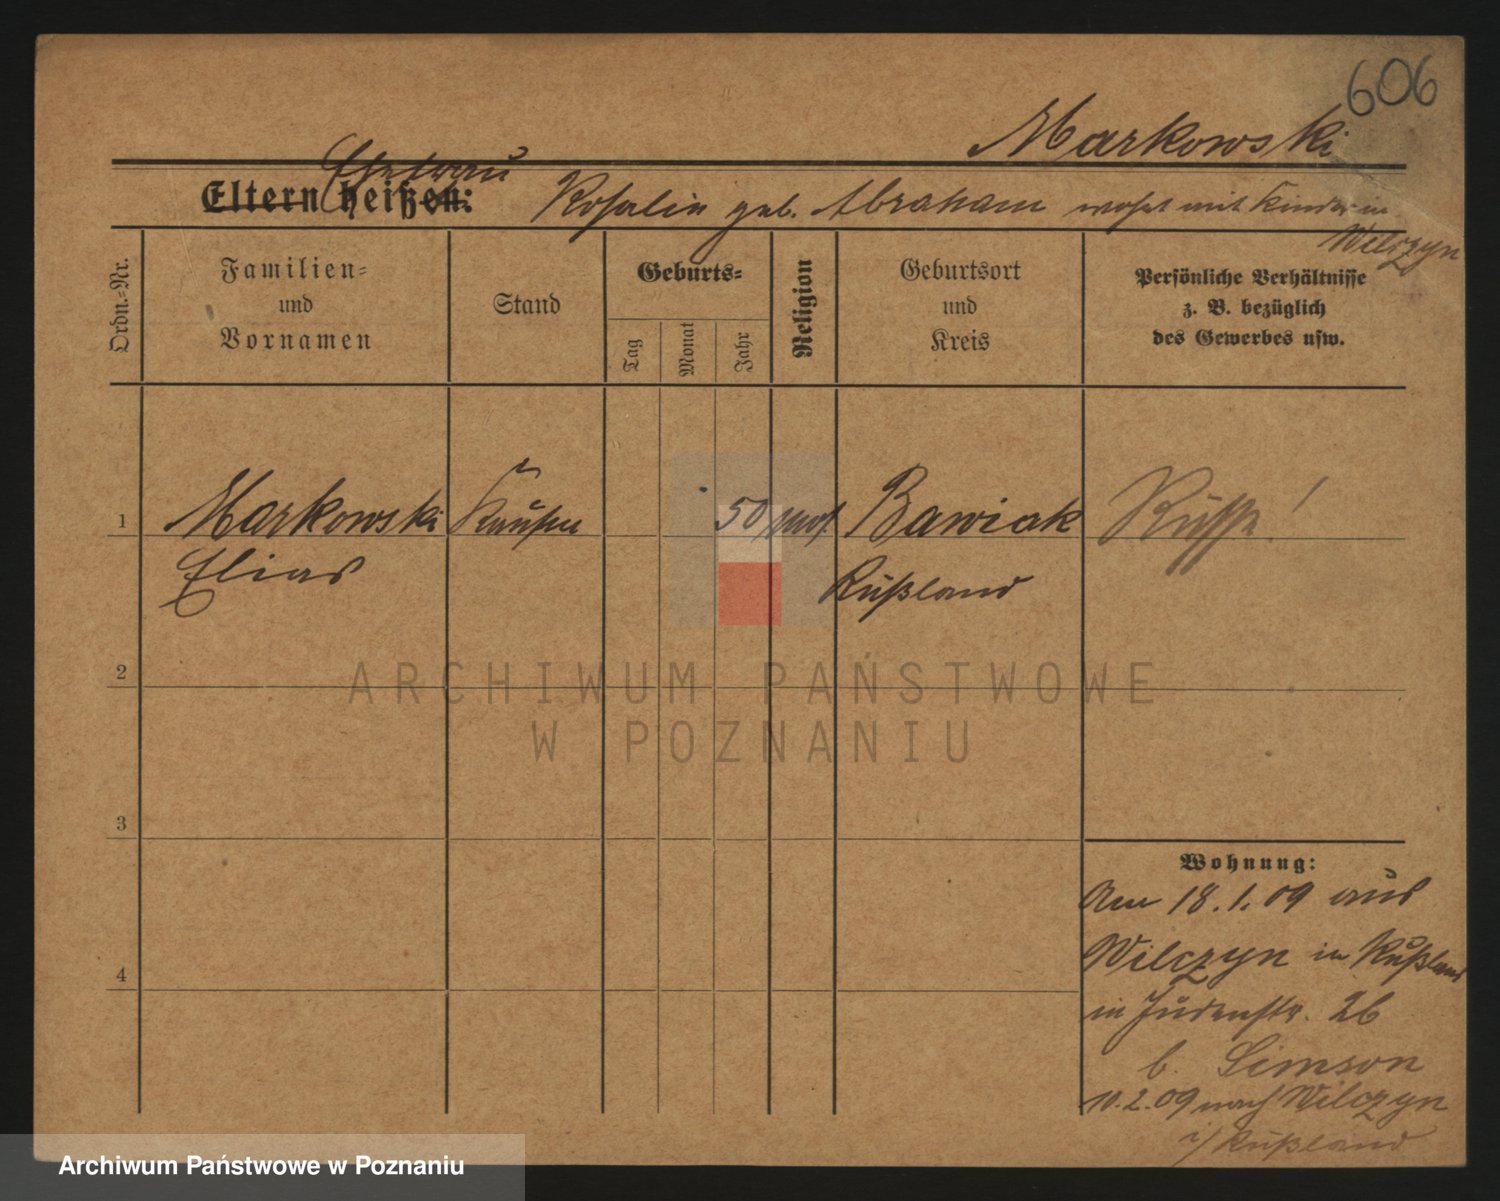 606
Markowski
Ehefrau
Eltern heißen: Rosalie geb. Abraham wohnt mit Kinder in
Wilczyn
Ordn.-Nr.
Familien-
und
Vornamen
Stand
Geburts-
Tag
Monat
Jahr
Religion
Geburtsort
und
Kreis
Persönliche Verhältnisse
z. B. bezüglich
des Gewerbes usw.
1 Markowski 50 mos. Bawiak Russe!
Elias Rußland
2
ARCHIWUM PAŃSTWOWE
W POZNANIU
3
Wohnung:
Am 18.1.09 aus
Wilczyn in Rußland
4
in Judenstr. 26
b. Simson
10.2.09 nach Wilczyn
i/ Rußland
Archiwum Państwowe w Poznaniu